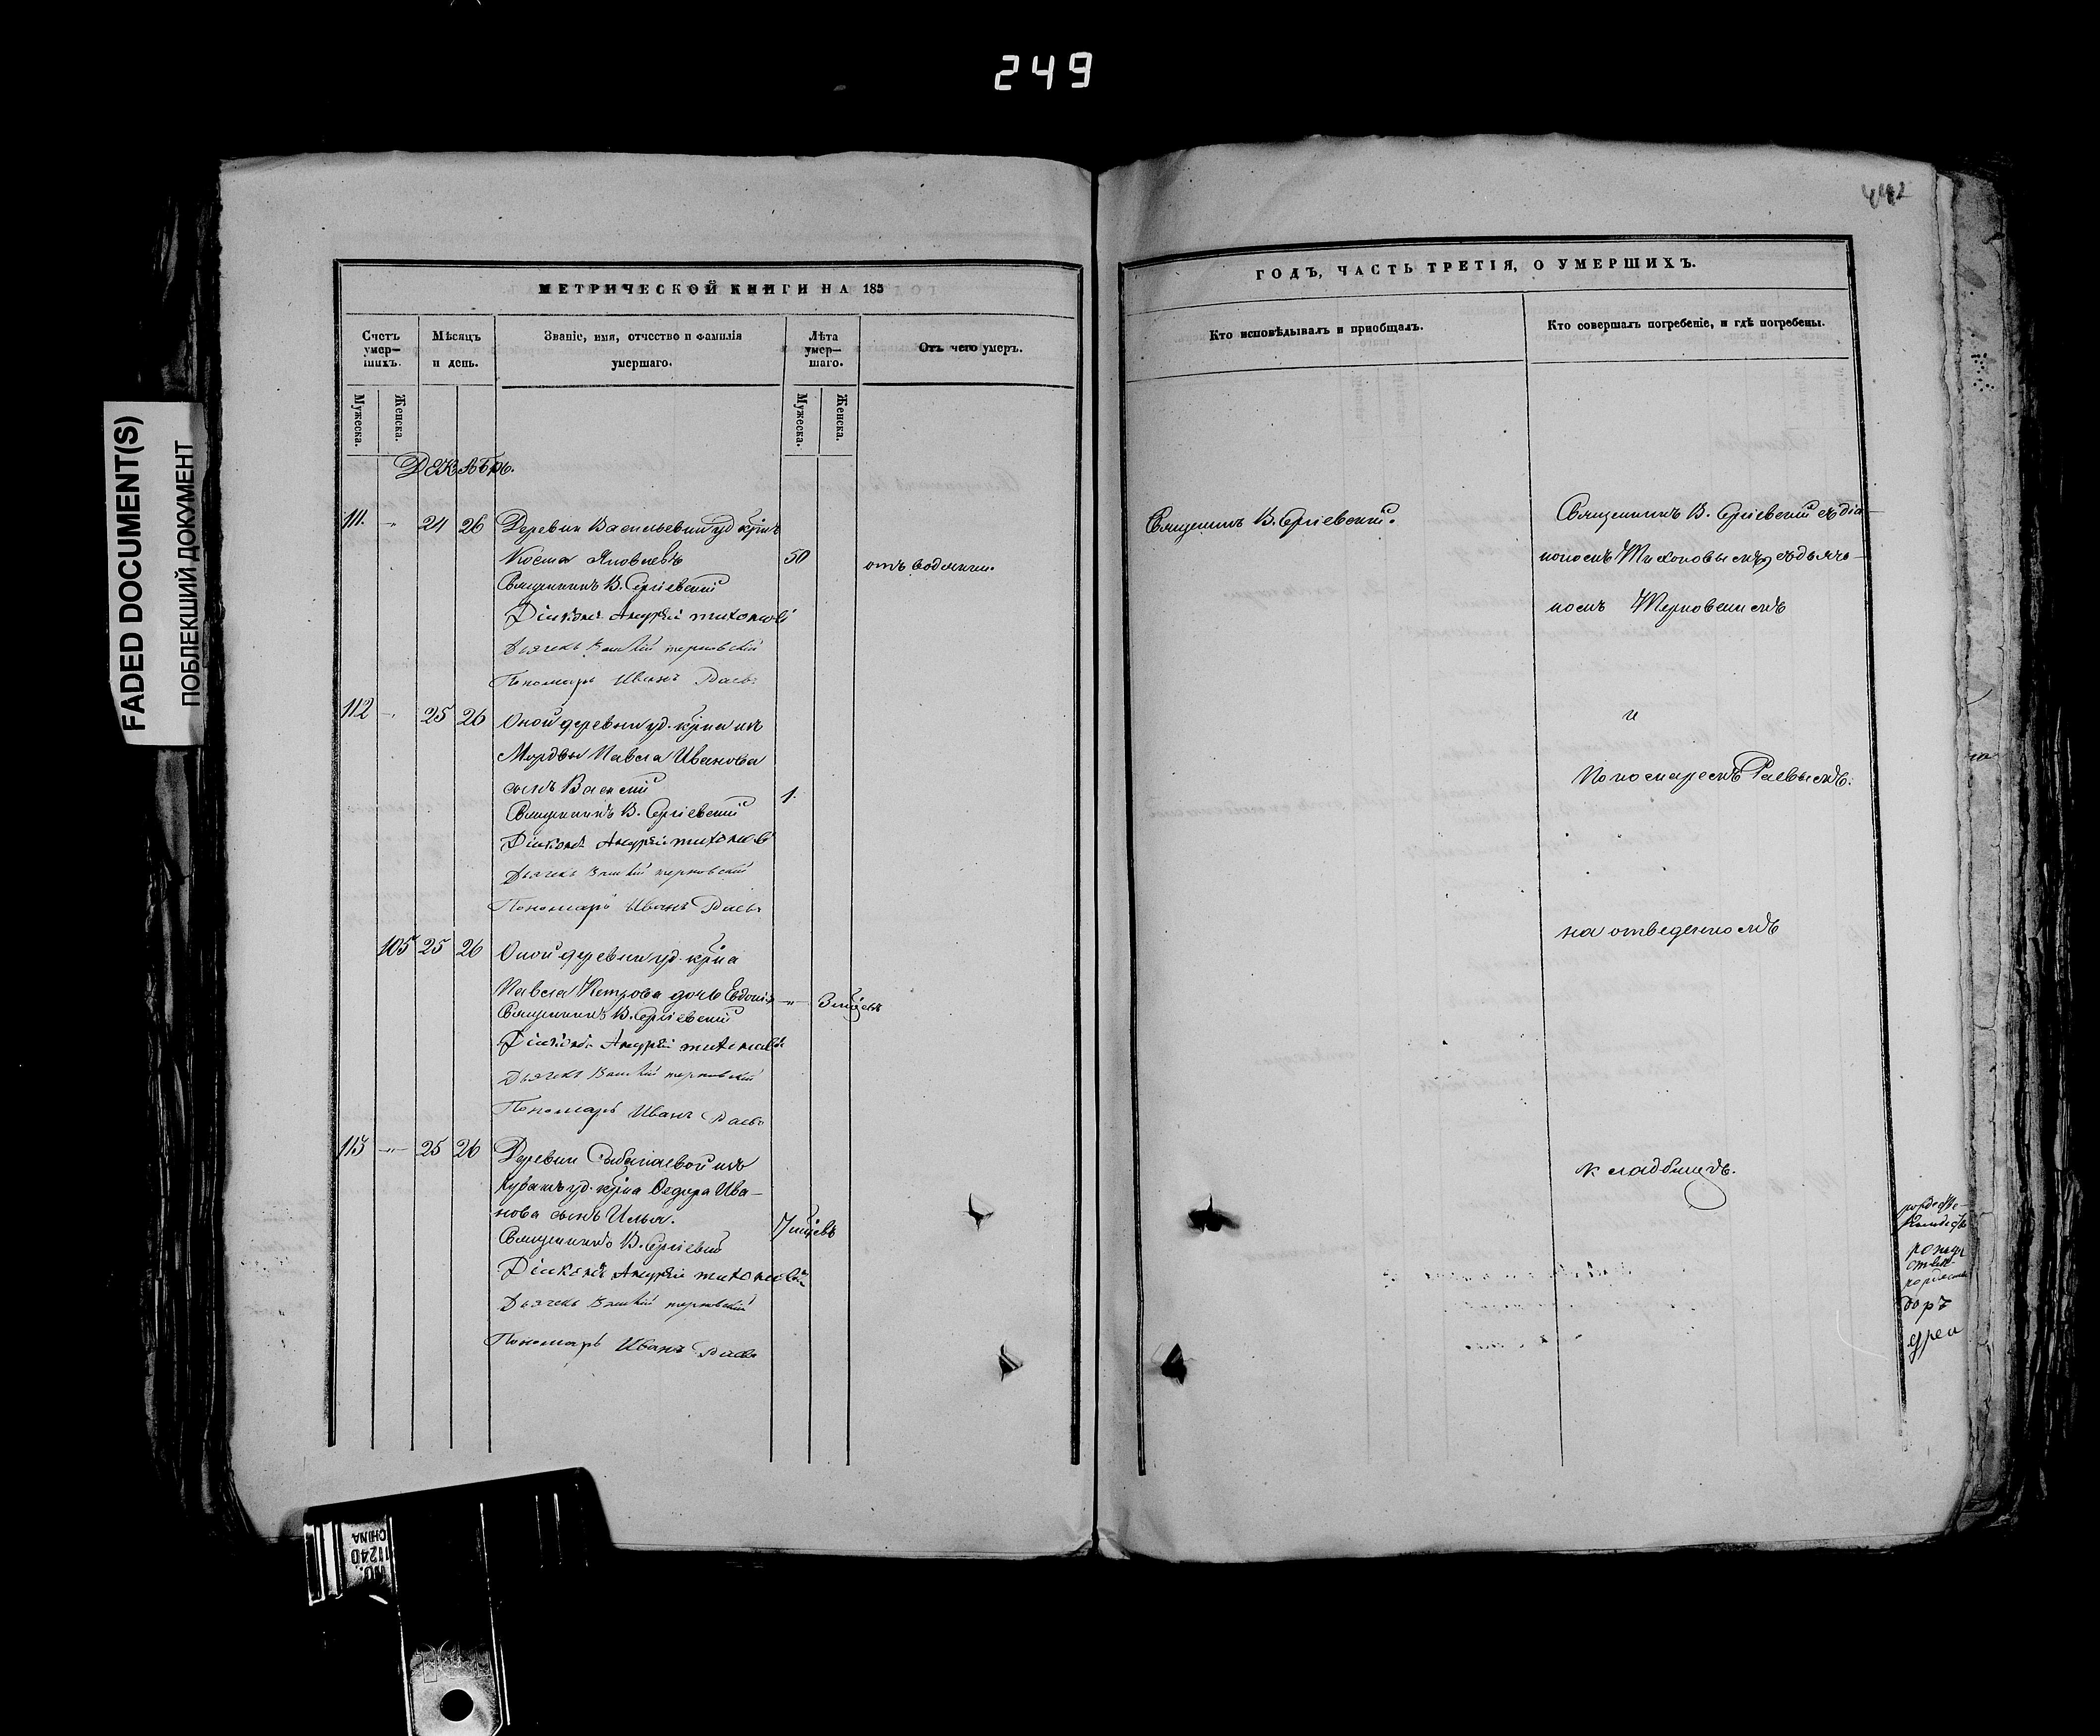 249
442
FADED DOCUMENT(S)
ПОБЛЕКШИЙ ДОКУМЕНТ
МЕТРИЧЕСКОЙ КНИГИ НА 185
Счетъ умер-шихъ.
Мѣсяцъ и день.
Званіе, имя, отчество и фамилія умершаго.
Лѣта умер-шаго.
Отъ чего умеръ.
Мужеска.
Женска.
Мужеска.
Женска.
Декабрь.
111. " 24 26 Деревни Васильевки уд. кр҃нъ
Косма Яковлевъ 50 отъ водянки.
Священникъ В. Сергіевскій
Діаконъ Андрей Тихоновъ
Дьячекъ Терновскій
Пономарь Иванъ Раевъ
112 " 25 26 Оной деревни уд. кр҃на изъ
Мордвы Павла Иванова
сынъ Василій 1.
Священникъ В. Сергіевскій
Діаконъ Андрей Тихоновъ
Дьячекъ Терновскій
Пономарь Иванъ Раевъ
105 25 26 Оной деревни уд. кр҃на
Павла Петрова дочь Евдокія " 3 мѣсяц
Священникъ В. Сергіевскій
Діаконъ Андрей Тихоновъ
Дьячекъ Терновскій
Пономарь Иванъ Раевъ
113 " 25 26 Деревни изъ
Чувашъ уд. кр҃на Ѳедора Ива-
нова сынъ Илья. 7 мѣсяцевъ
Священникъ В. Сергіевскій
Діаконъ Андрей Тихоновъ
Дьячекъ Терновскій
Пономарь Иванъ Раевъ
ГОДЪ, ЧАСТЬ ТРЕТІЯ, О УМЕРШИХЪ.
Кто исповѣдывалъ и пріобщалъ.
Кто совершалъ погребеніе, и гдѣ погребены.
Священникъ В. Сергіевскій.
Священникъ В. Сергіевскій съ діа-
кономъ Тихоновымъ, съ дьяч-
комъ Терновскимъ
и
Пономаремъ Раевымъ.
на отведенномъ
кладбищѣ.
NO. 11240
CHINA